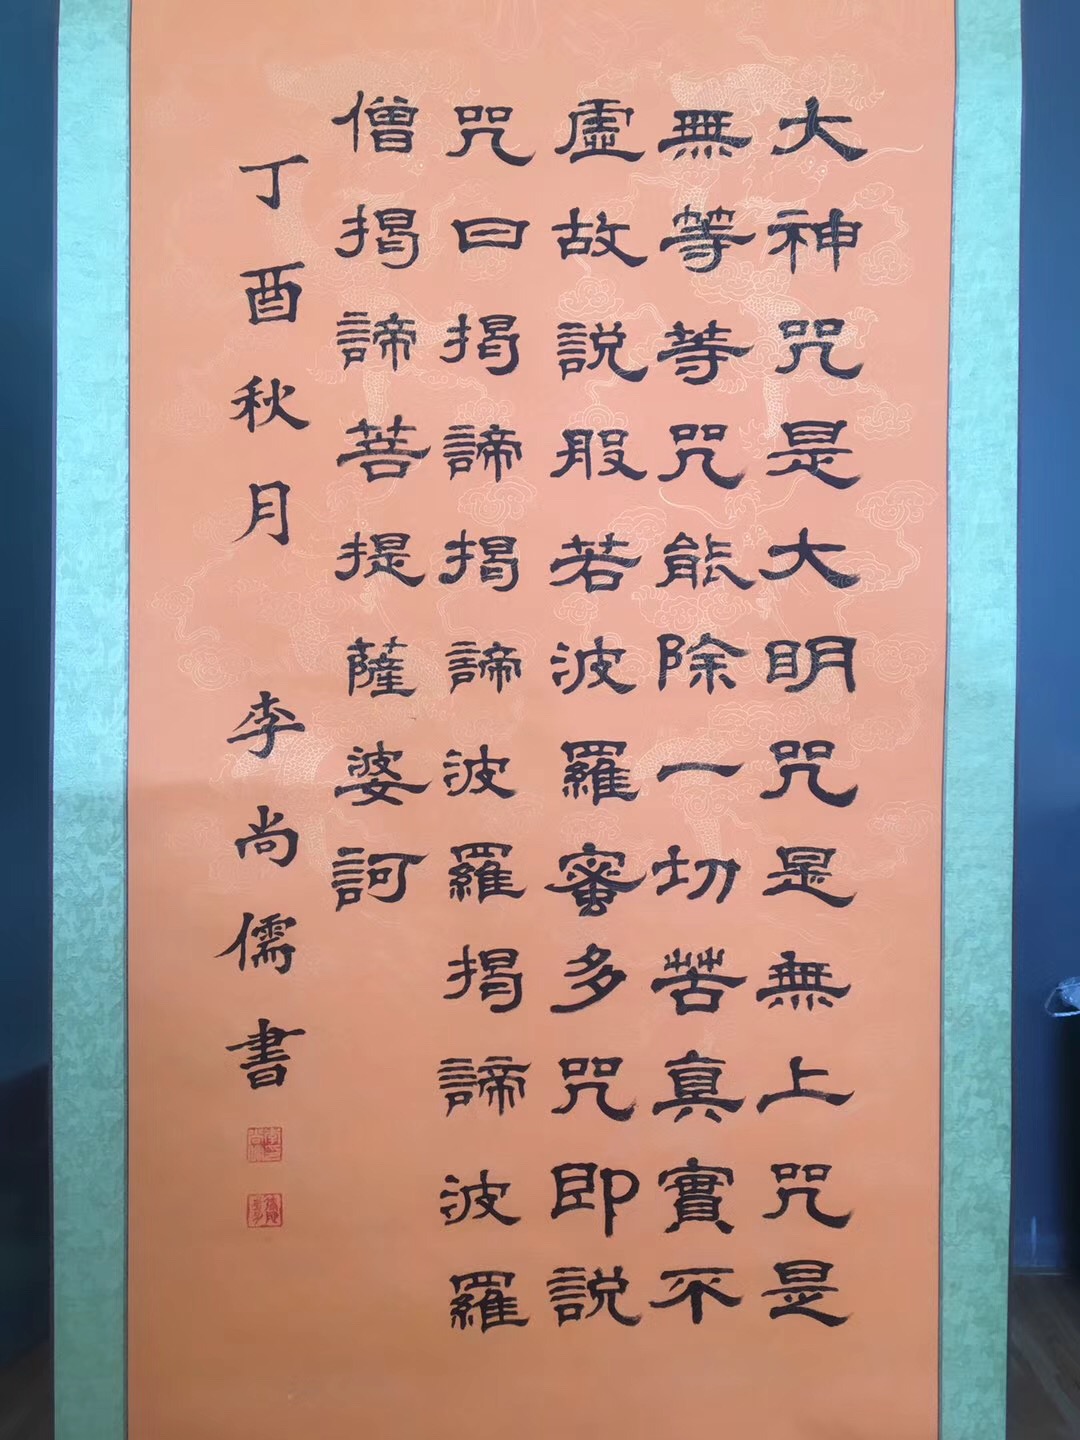 大神咒是大明咒是無上咒是
無等等咒能除一切苦真實不
虛故說般若波羅蜜多咒即說
咒曰揭諦揭諦波羅揭諦波羅
僧揭諦菩提薩婆訶
丁酉秋月 李尚儒書